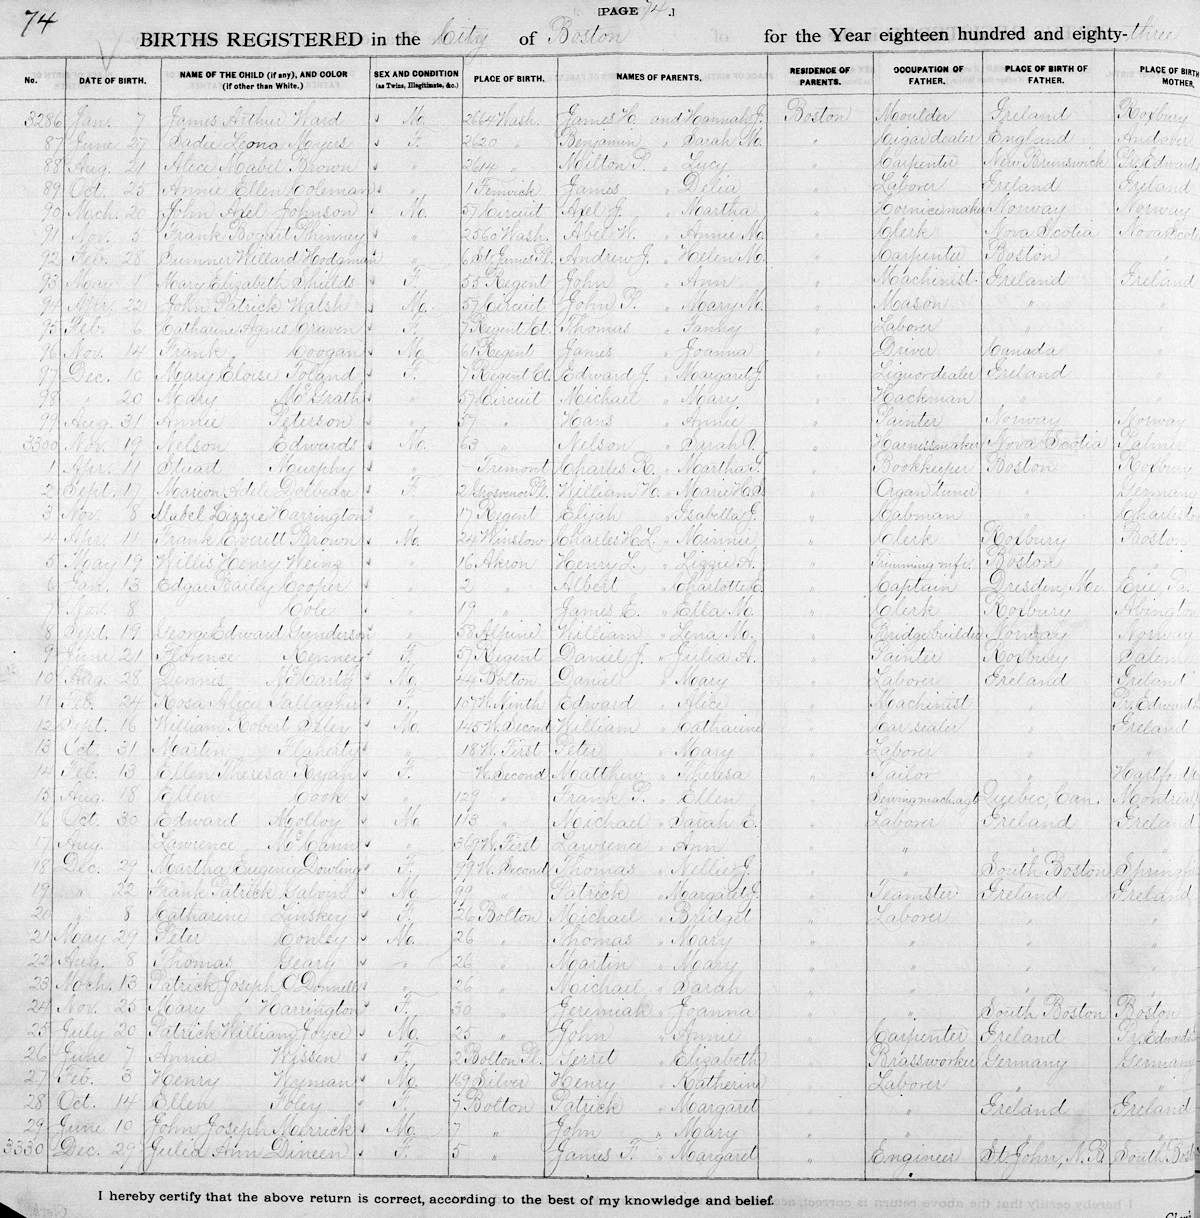 74
[PAGE 74.]
BIRTHS REGISTERED in the City of Boston for the Year eighteen hundred and eighty-three
No. DATE OF BIRTH. NAME OF THE CHILD (if any), AND COLOR (if other than White.) SEX AND CONDITION (as Twins, Illegitimate, &c.) PLACE OF BIRTH. NAMES OF PARENTS. RESIDENCE OF PARENTS. OCCUPATION OF FATHER. PLACE OF BIRTH OF FATHER. PLACE OF BIRTH MOTHER.
3286 Jan. 7 James Arthur Ward M. 2614 Wash. James H. and Hannah J. Boston Moulder Ireland Roxbury
87 June 27 Sadie Leona Meyers F. 2620 " Benjamin " Sarah M. " Cigar dealer England Andover
88 Aug. 21 Alice Mabel Brown " 2614 " Milton P. " Lucy " Carpenter New Brunswick Pr. Edwards
89 Oct. 25 Annie Ellen Coleman " 1 Fenwick James " Delia " Laborer Ireland Ireland
90 Mch. 20 John Axel Johnson M. 57 Circuit Axel J. " Martha " Cornice maker Norway Norway
91 Nov. 5 Frank Bogart Phinney " 2560 Wash. Abel W. " Annie M. " Clerk Nova Scotia Nova Scot
92 Feb. 28 Sumner Willard Hodsman " 6 St. James Pl. Andrew J. " Helen M. " Carpenter Boston "
93 Nov. 1 Mary Elizabeth Shields F. 55 Regent John " Ann " Machinist Ireland Ireland
94 May 22 John Patrick Walsh M. 57 Circuit John P. " Mary M. " Mason " "
95 Feb. 6 Catharine Agnes Craven F. 7 Regent Ct. Thomas " Fanny " Laborer " "
96 Nov. 14 Frank Coogan M. 61 Regent James " Joanna " Driver Canada "
97 Dec. 10 Mary Eloise Toland F. 7 Regent Ct. Edward J. " Margaret J. " Liquor dealer Ireland "
98 " 20 Mary McGrath " 57 Circuit Michael " Mary " Hackman " "
99 Aug. 31 Annie Peterson " 57 " Hans " Annie " Painter Norway Norway
3300 Nov. 19 Nelson Edwards M. 63 " Nelson " Sarah " Harnessmaker Nova Scotia
1 Apr. 11 Stuart Murphy " Tremont Charles R. " Martha F. " Bookkeeper Boston Roxbury
2 Sept. 17 Marion Adele Dolbeare F. 2 Grosvenor Pl. William H. " Marie " Organ tuner " German
3 Nov. 8 Mabel Lizzie Harrington " 17 Regent Elijah " Isabella J. " Cabman "
4 Apr. 11 Frank Everett Brown M. 24 Winslow Charles H. L. " Minnie " Clerk Roxbury Boston
5 May 19 Willis Henry " 16 Akron Henry L. " Lizzie A. " Trimming mfr. Boston "
6 Jan. 13 Edgar Bailey Cooper " 2 " Albert " Charlotte E. " Captain Dresden, Me. Erie, Pa.
7 Nov. 8 Cole " 19 " James E. " Ella M. " Clerk Roxbury Abington
8 Sept. 19 George Edward Gunderson " 58 Alpine William " Lena M. " Bridge builder Norway Norway
9 June 21 Florence Kenney F. 57 Regent Daniel J. " Julia A. " Painter Roxbury Salem
10 Aug. 28 Dennis McCarty M. 44 Bolton Daniel " Mary " Laborer Ireland Ireland
11 Feb. 24 Rosa Alice Gallagher F. 107 W. Ninth Edward " Alice " Machinist " Pr. Edwards
12 Sept. 16 William Robert M. 145 W. Second William " Catharine " Car sealer " Ireland
13 Oct. 31 Martin Flaherty " 18 W. First Peter " Mary " Laborer " "
14 Feb. 13 Ellen Theresa Ryan F. W. Second Matthew " Theresa " Tailor " Hartford
15 Aug. 18 Ellen Cook " 129 " Frank P. " Ellen " Sewing mach. agt. Quebec, Can. Montreal
16 Oct. 30 Edward Molloy M. 113 " Michael " Sarah E. " Laborer Ireland Ireland
17 Aug. Lawrence McCann " 369 W. First Lawrence " Ann " " " "
18 Dec. 27 Martha Eugenia Dowling F. 99 W. Second Thomas " Nellie J. " " South Boston Spring
19 " 22 Frank Patrick Galvin M. 99 " Patrick " Margaret J. " Teamster Ireland Ireland
20 " 8 Catharine Linskey F. 26 Bolton Michael " Bridget " Laborer " "
21 May 29 Peter Conley M. 26 " Thomas " Mary " " " "
22 Aug. 8 Thomas Geary " 26 " Martin " Mary " " " "
23 Mch. 13 Patrick Joseph O'Donnell " 26 " Michael " Sarah " " " "
24 Nov. 25 Mary Harrington F. 30 " Jeremiah " Joanna " " South Boston Boston
25 July 20 Patrick William Joyce M. 25 " John " Annie " Carpenter Ireland Pr. Edwards
26 June 7 Annie Wessen F. 2 Bolton Pl. Gerret " Elizabeth " Brassworker Germany German
27 Feb. 3 Henry Wyman M. 169 Silver Henry " Katherin " Laborer " "
28 Oct. 14 Ellen Foley F. 7 Bolton Patrick " Margaret " " Ireland Ireland
29 June 10 John Joseph Merrick M. 7 " John " Mary " " " "
3330 Dec. 29 Julia Ann Dineen F. 5 " James F. " Margaret " Engineer St. John, N.B. South Bost
I hereby certify that the above return is correct, according to the best of my knowledge and belief.